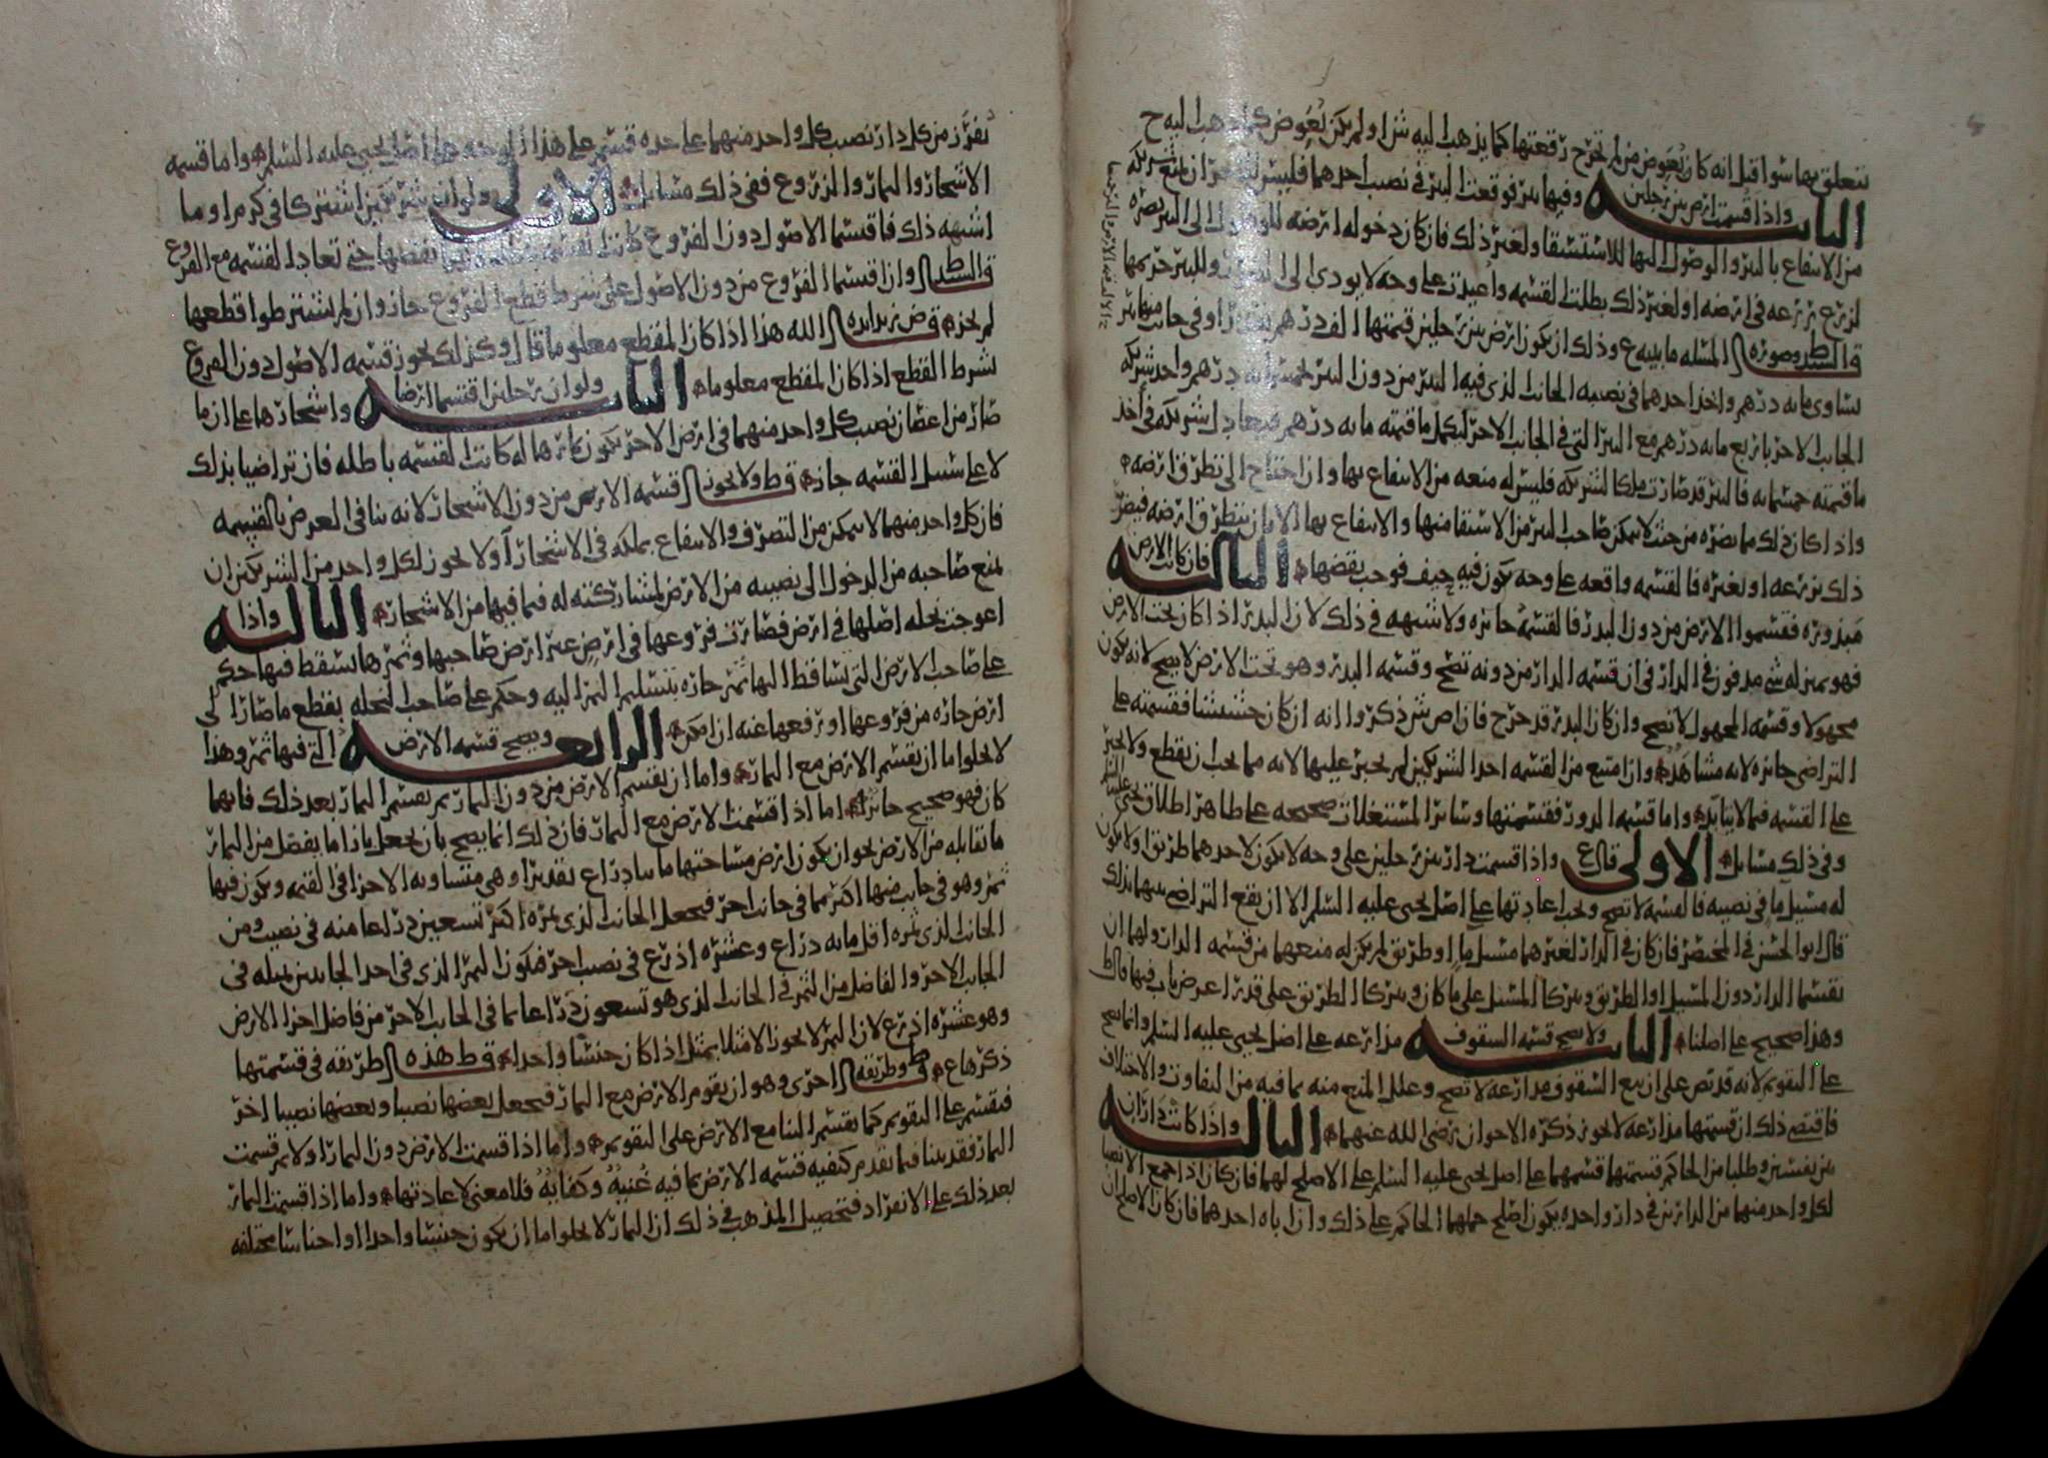 تتعلق بها سوا قيل انه كان يعوض من لم تخرج رقعتها كما يذهب اليه ش او لم يكن يعوض كما ذهب اليه ح
الثانيه واذا قسمت ارض بين رجلين وفيها بير فوقعت البير في نصيب احدهما فليس للاخر ان يمنع شريكه
من الانتفاع بالبير والوصول اليها للاستسقا ولغير ذلك فان كان دخوله ارضه للوصول الى البير يضره
لزرع زرعه في ارضه او لغير ذلك بطلت القسمه واعيدت على وجه لا يودي الى الضرر وللبير حريمها
قال السيد ط وصوره المسله ما بينه ع وذلك ان يكون ارض بين رجلين قيمتها الف درهم وفي جانب منها بير
تساوي مايه درهم واخذ احدهما في نصيبه الجانب الذي فيه البير من دون البير بخمسمايه درهم واخذ شريكه
الجانب الاخر باربع مايه درهم مع البير التي في الجانب الاخر ليكمل ما قيمته مايه درهم فيعادل شريكه في اخذ
ما قيمته خمسمايه فالبير قد صارت ملكا لشريكه فليس له منعه من الانتفاع بها وان احتاج الى تطرق ارضه
واذا كان ذلك مما يضره من حيث لا يمكن صاحب البير من الاستقا منها والانتفاع بها الا بان يتطرق ارضه فيضر
ذلك بزرعه او بغيره فالقسمه واقعه على وجه يكون فيه حيف فوجب نقضها الثالثه فان كانت الارض
مبذوره فقسموا الارض من دون البذر فالقسمه جائزه ولا شبهه في ذلك لان البذر اذا كان تحت الارض
فهو بمنزله شي مدفون في الدار في ان قسمه الدار من دونه تصح وقسمه البذر وهو تحت الارض لا يصح لانه يكون
مجهولا وقسمه المجهول لا تصح وان كان البذر قد خرج فان اص ش ذكروا انه ان كان حشيشا فقسمته على
التراضي جائزه لانه مشاهد وان امتنع من القسمه احد الشريكين لم يجبر عليها لانه مما يجب ان يقطع ولا يجبر
على القسمه فيما لا يتابد واما قسمه الدور فقسمتها وسائر المستغلات صحيحه على ظاهر اطلاق يحيى عليه السلم
وفي ذلك مسائل الاولى قال ع واذا قسمت دار بين رجلين على وجه لا يكون لاحدهما طريق او لا يكون
له مسيل ما في نصيبه فالقسمه لا تصح ويجب اعادتها على اصل يحيى عليه السلم الا ان يقع التراضي بينهما بذلك
قال ابو الحسن في المختصر فان كان في الدار لغيرهما مسيل ما او طريق لم يكن له منعهما من قسمه الدار ولهما ان
يقسما الدار دون المسيل او الطريق ويتركا المسيل على ما كان ويتركا الطريق على قدر اعرض باب فيها قال ط
وهذا صحيح على اصلنا الثانيه ولا يصح قسمه السقوف مذارعه على اصل يحيى عليه السلم وانما يصح
على التقويم لانه قد نص على ان بيع السقوف مذارعه لا تصح وعلل المنع منه بما فيه من التفاوت والاختلاف
فاقتضى ذلك ان قسمتها مذارعه لا يجوز ذكره الاخوان رضي الله عنهما الثالثه واذا كانت داران
بين نفسين وطلبا من الحاكم قسمتها قسمهما على اصل يحيى عليه السلم على الاصلح لهما فان كان اذا جمع الانصبا
لكل واحد منهما من الدارين في دار واحده يكون اصلح حملهما الحاكم على ذلك وان اباه احدهما فان كان الاصلح ان
تفرز من كل دار نصيب كل واحد منهما على حده قسم على هذا الوجه على اصل يحيى عليه السلم واما قسمه
الاشجار والثمار والزروع ففي ذلك مسائل الاولى ولو ان شريكين اشتركا في كرم او ما
اشبهه ذلك فاقتسما الاصول دون الفروع كانت القسمه نقضها حتى تعاد القسمه مع الفروع
قال السيد ط وان اقتسما الفروع من دون الاصول على شرط قطع الفروع جاز وان لم يشترطوا قطعها
لم يجز قال ص زيد ايده الله هذا اذا كان المقطع معلوما قال وكذلك يجوز قسمه الاصول دون الفروع
بشرط القطع اذا كان المقطع معلوما الثانيه ولو ان رجلين اقتسما ارضا واشجارها على ان ما
صار من اغصان نصيب كل واحد منهما في ارض الاخر يكون تاركها له كانت القسمه باطله فان تراضيا بذلك
لا على سبيل القسمه جاز قال ط ولا يجوز قسمه الارض من دون الاشجار لانه ينافي الغرض بالقسمه
فان كل واحد منهما لا يمكن من التصرف والانتفاع بملكه في الاشجار ولا يجوز لكل واحد من الشريكين ان
يمنع صاحبه من الدخول الى نصيبه من الارض لمشاركته له فيما فيها من الاشجار الثالثه واذا
اعوجت نخله اصلها في ارض فصارت فروعها في ارض غير ارض صاحبها وثمرها يسقط فيها حكم
على صاحب الارض التي تساقط اليها ثمر جاره بتسليم الثمر اليه وحكم على صاحب النخله بقطع ما صار الى
ارض جاره من فروعها او رفعها عنه ان امكن الرابعه ويصح قسمه الارض التي فيها ثمر وهذا
لا يخلو اما ان يقسم الارض مع الثمار واما ان يقتسم الارض من دون الثمار ثم يقتسم الثمار بعد ذلك فايهما
كان فهو صحيح جائز اما اذا قسمت الارض مع الثمار فان ذلك انما يصح بان يجعل بازا ما يفضل من الثمار
ما يقابله من الارض نحو ان يكون ارض مساحتها مايتا ذراع تقديرا وهي متساويه الاجزا في القيمه ويكون فيها
ثمر وهو في جانب منها اكثر مما في جانب اخر فيجعل الجانب الذي ثمره اكثر تسعين ذراعا منه في نصيب ومن
الجانب الذي ثمره اقل مايه ذراع وعشره اذرع في نصيب اخر فيكون الثمر الذي في احد الجانبين بمثله في
الجانب الاخر والفاضل من الثمر في الجانب الذي هو تسعون ذراعا بما في الجانب الاخر من فاضل اجزا الارض
وهو عشره اذرع لان الثمر لا يجوز الا مثلا بمثل اذا كان جنسا واحدا قال ط هذه طريقه في قسمتها
ذكرها ع قال ط وطريقه اخرى وهو ان يقوم الارض مع الثمار فيجعل بعضها نصيبا وبعضها نصيبا اخر
فيقسم على التقويم كما يقسم البنا مع الارض على التقويم واما اذا قسمت الارض دون الثمار اولا ثم قسمت
الثمار فقد بينا فيما تقدم كيفيه قسمه الارض بما فيه غنيه وكفايه فلا معنى لاعادتها واما اذا قسمت الثمار
بعد ذلك على الانفراد فتحصيل المذهب في ذلك ان الثمار لا يخلو اما ان يكون جنسا واحدا او اجناسا مختلفه